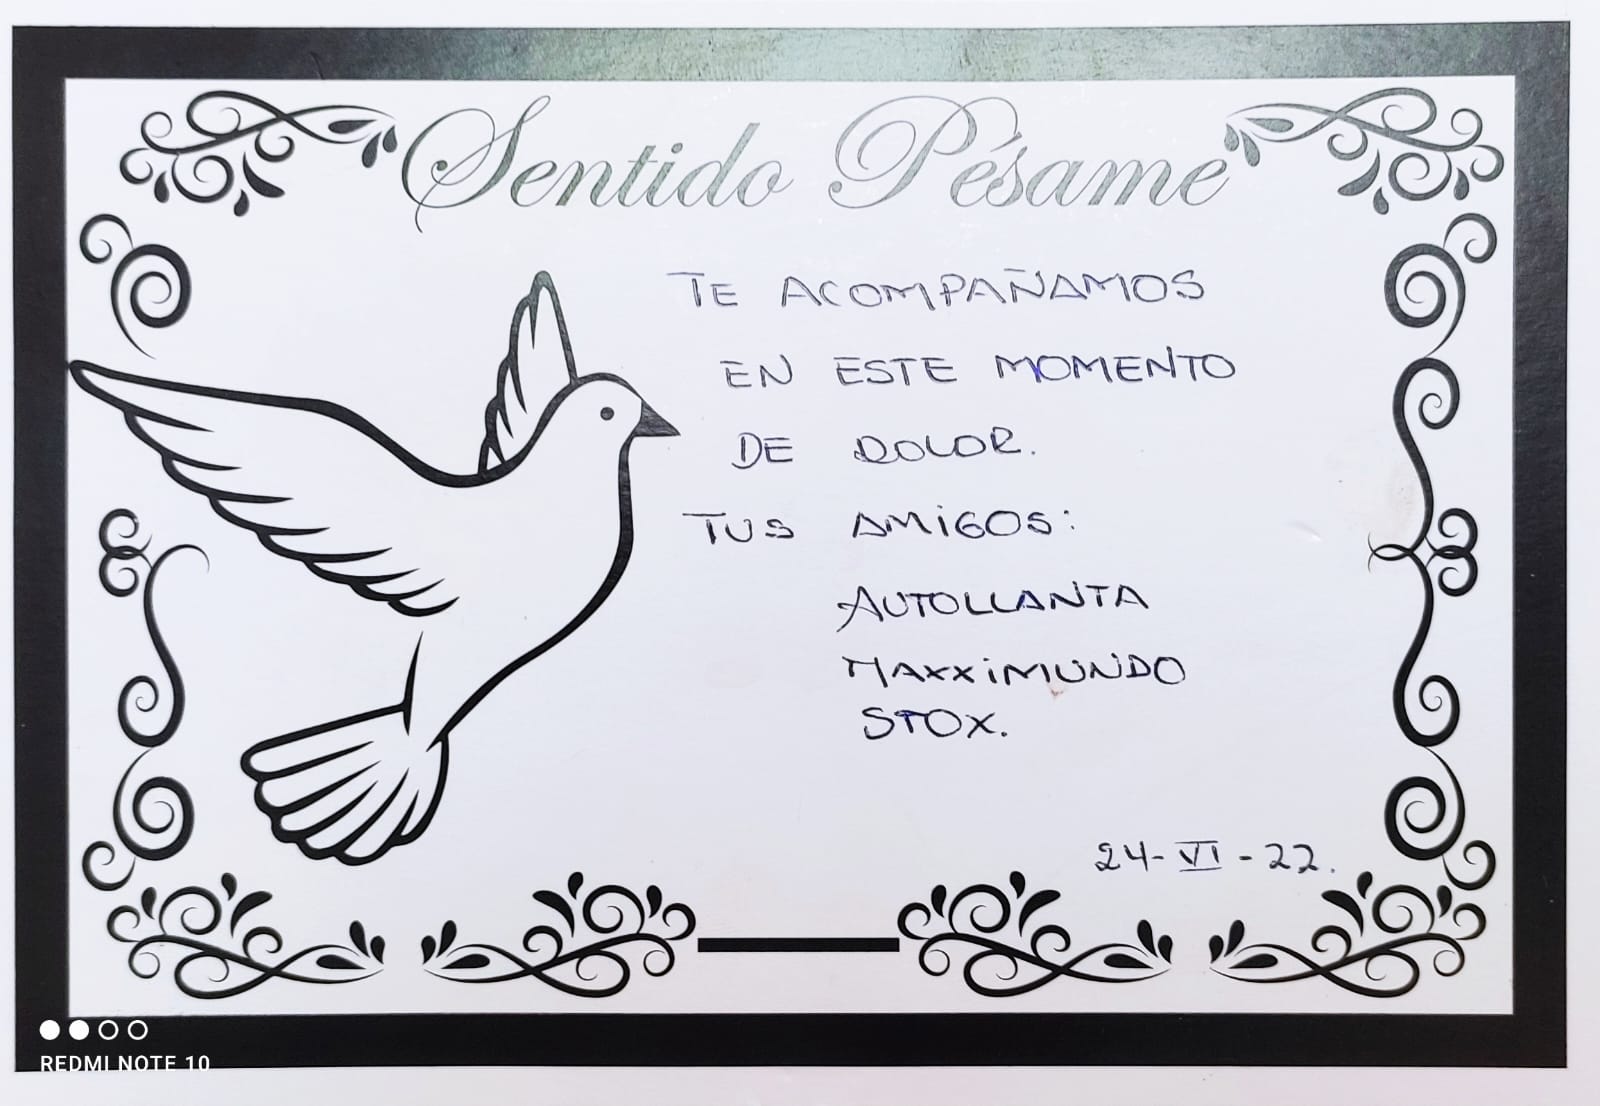 Sentido Pésame
TE ACOMPAÑAMOS
EN ESTE MOMENTO
DE DOLOR.
TUS AMIGOS:
AUTOLLANTA
MAXXIMUNDO
STOX.
24-VI-22.
REDMI NOTE 10